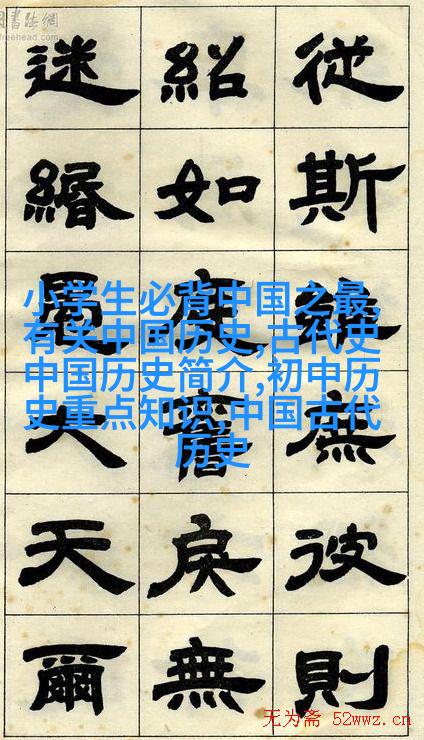 書法網
freehead.com
從斯庶彼則
紹如戾無
迷緡大天爾
小学生必背中国之最,
有关中国历史,古代史
中国历史简介,初中历
史重点知识,中国古代
历史
无为斋 52wwz.cn